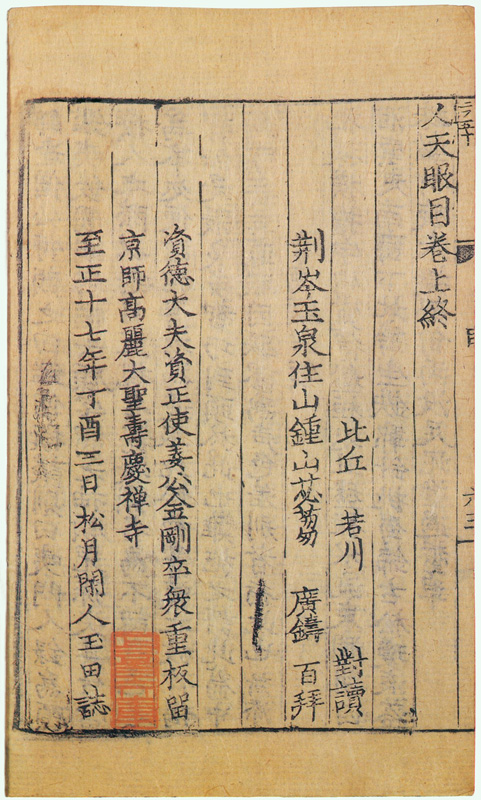 人天眼目卷上終
比丘 若川 對讀
荆岑玉泉住山鍾山苾蒭 廣鑄 百拜
資德大夫資正使姜公金剛卒衆重板留
京師高麗大聖壽慶禅寺
至正十七年丁酉三日松月閑人玉田誌